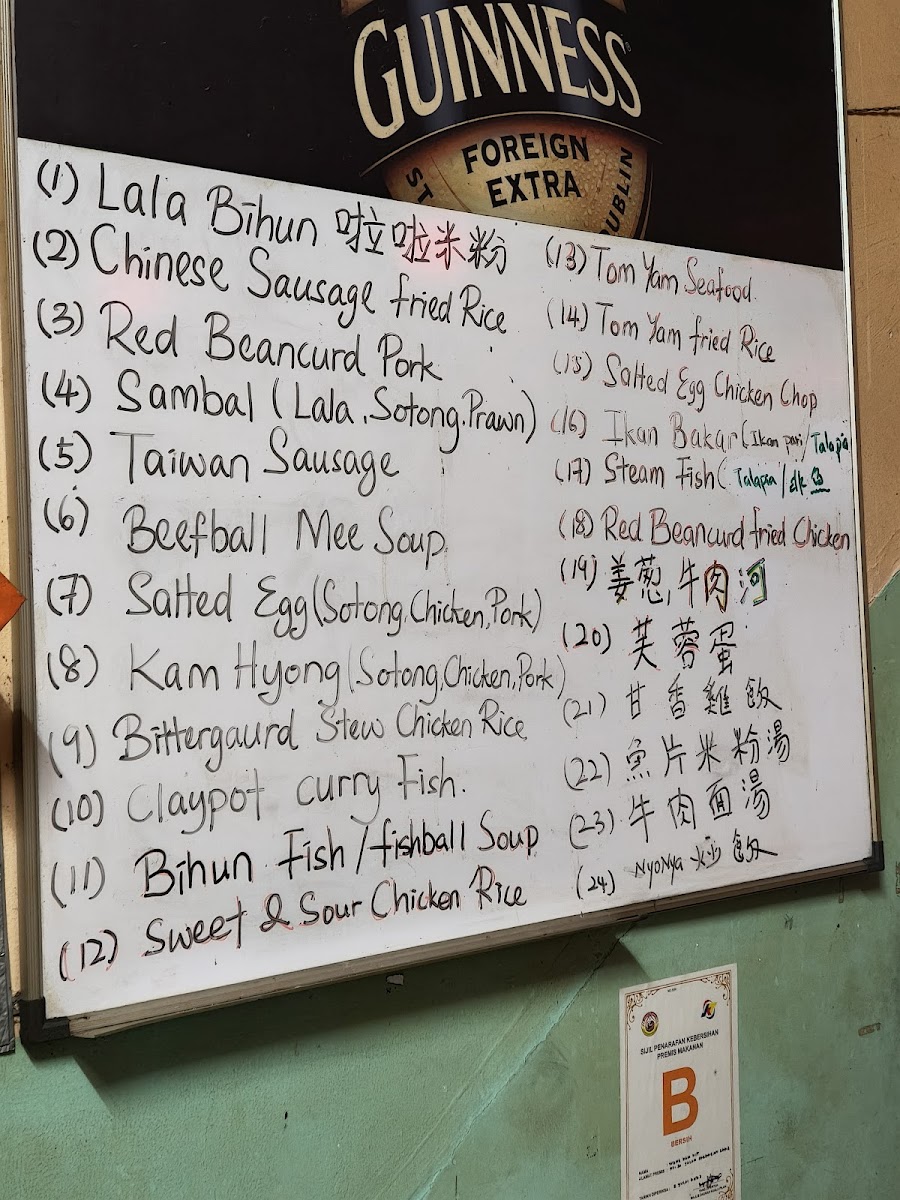 GUINNESS
FOREIGN
EXTRA
ST
UBLIN
(1) Lala Bihun 啦啦米粉
(2) Chinese Sausage fried Rice
(3) Red Beancurd Pork
(4) Sambal (Lala, Sotong, Prawn)
(5) Taiwan Sausage
(6) Beefball Mee Soup
(7) Salted Egg (Sotong, Chicken, Pork)
(8) Kam Hyong (Sotong, Chicken, Pork)
(9) Bittergaurd Stew Chicken Rice
(10) Claypot curry Fish.
(11) Bihun Fish/fishball Soup
(12) Sweet & Sour Chicken Rice
(13) Tom Yam Seafood
(14) Tom Yam fried Rice
(15) Salted Egg Chicken Chop
(16) Ikan Bakar (Ikan pari/Talapia
(17) Steam Fish (Talapia/
(18) Red Beancurd fried Chicken
(19) 姜葱牛肉河
(20) 芙蓉蛋
(21) 甘香雞飯
(22) 魚片米粉湯
(23) 牛肉面湯
(24) NYONYA 炒飯
SIJIL PENARAFAN KEBERSIHAN
PREMIS MAKANAN
B
BERSIH